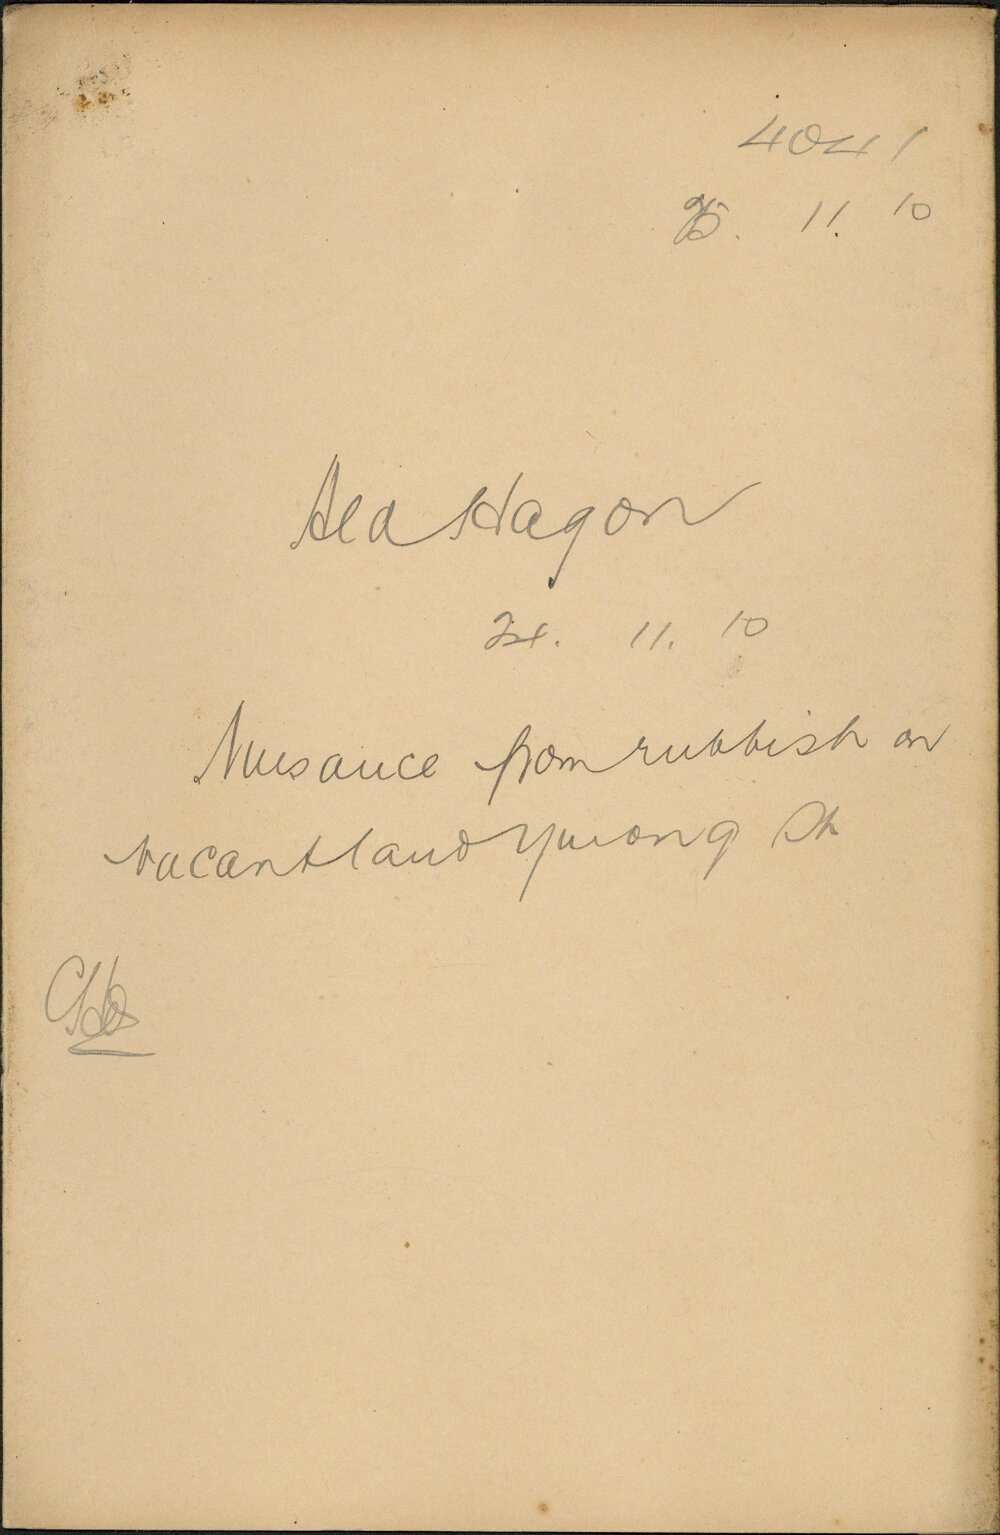 4041
25. 11. 10
Ald Hagon
24. 11. 10
Nuisance from rubbish on
vacant land Yurong St